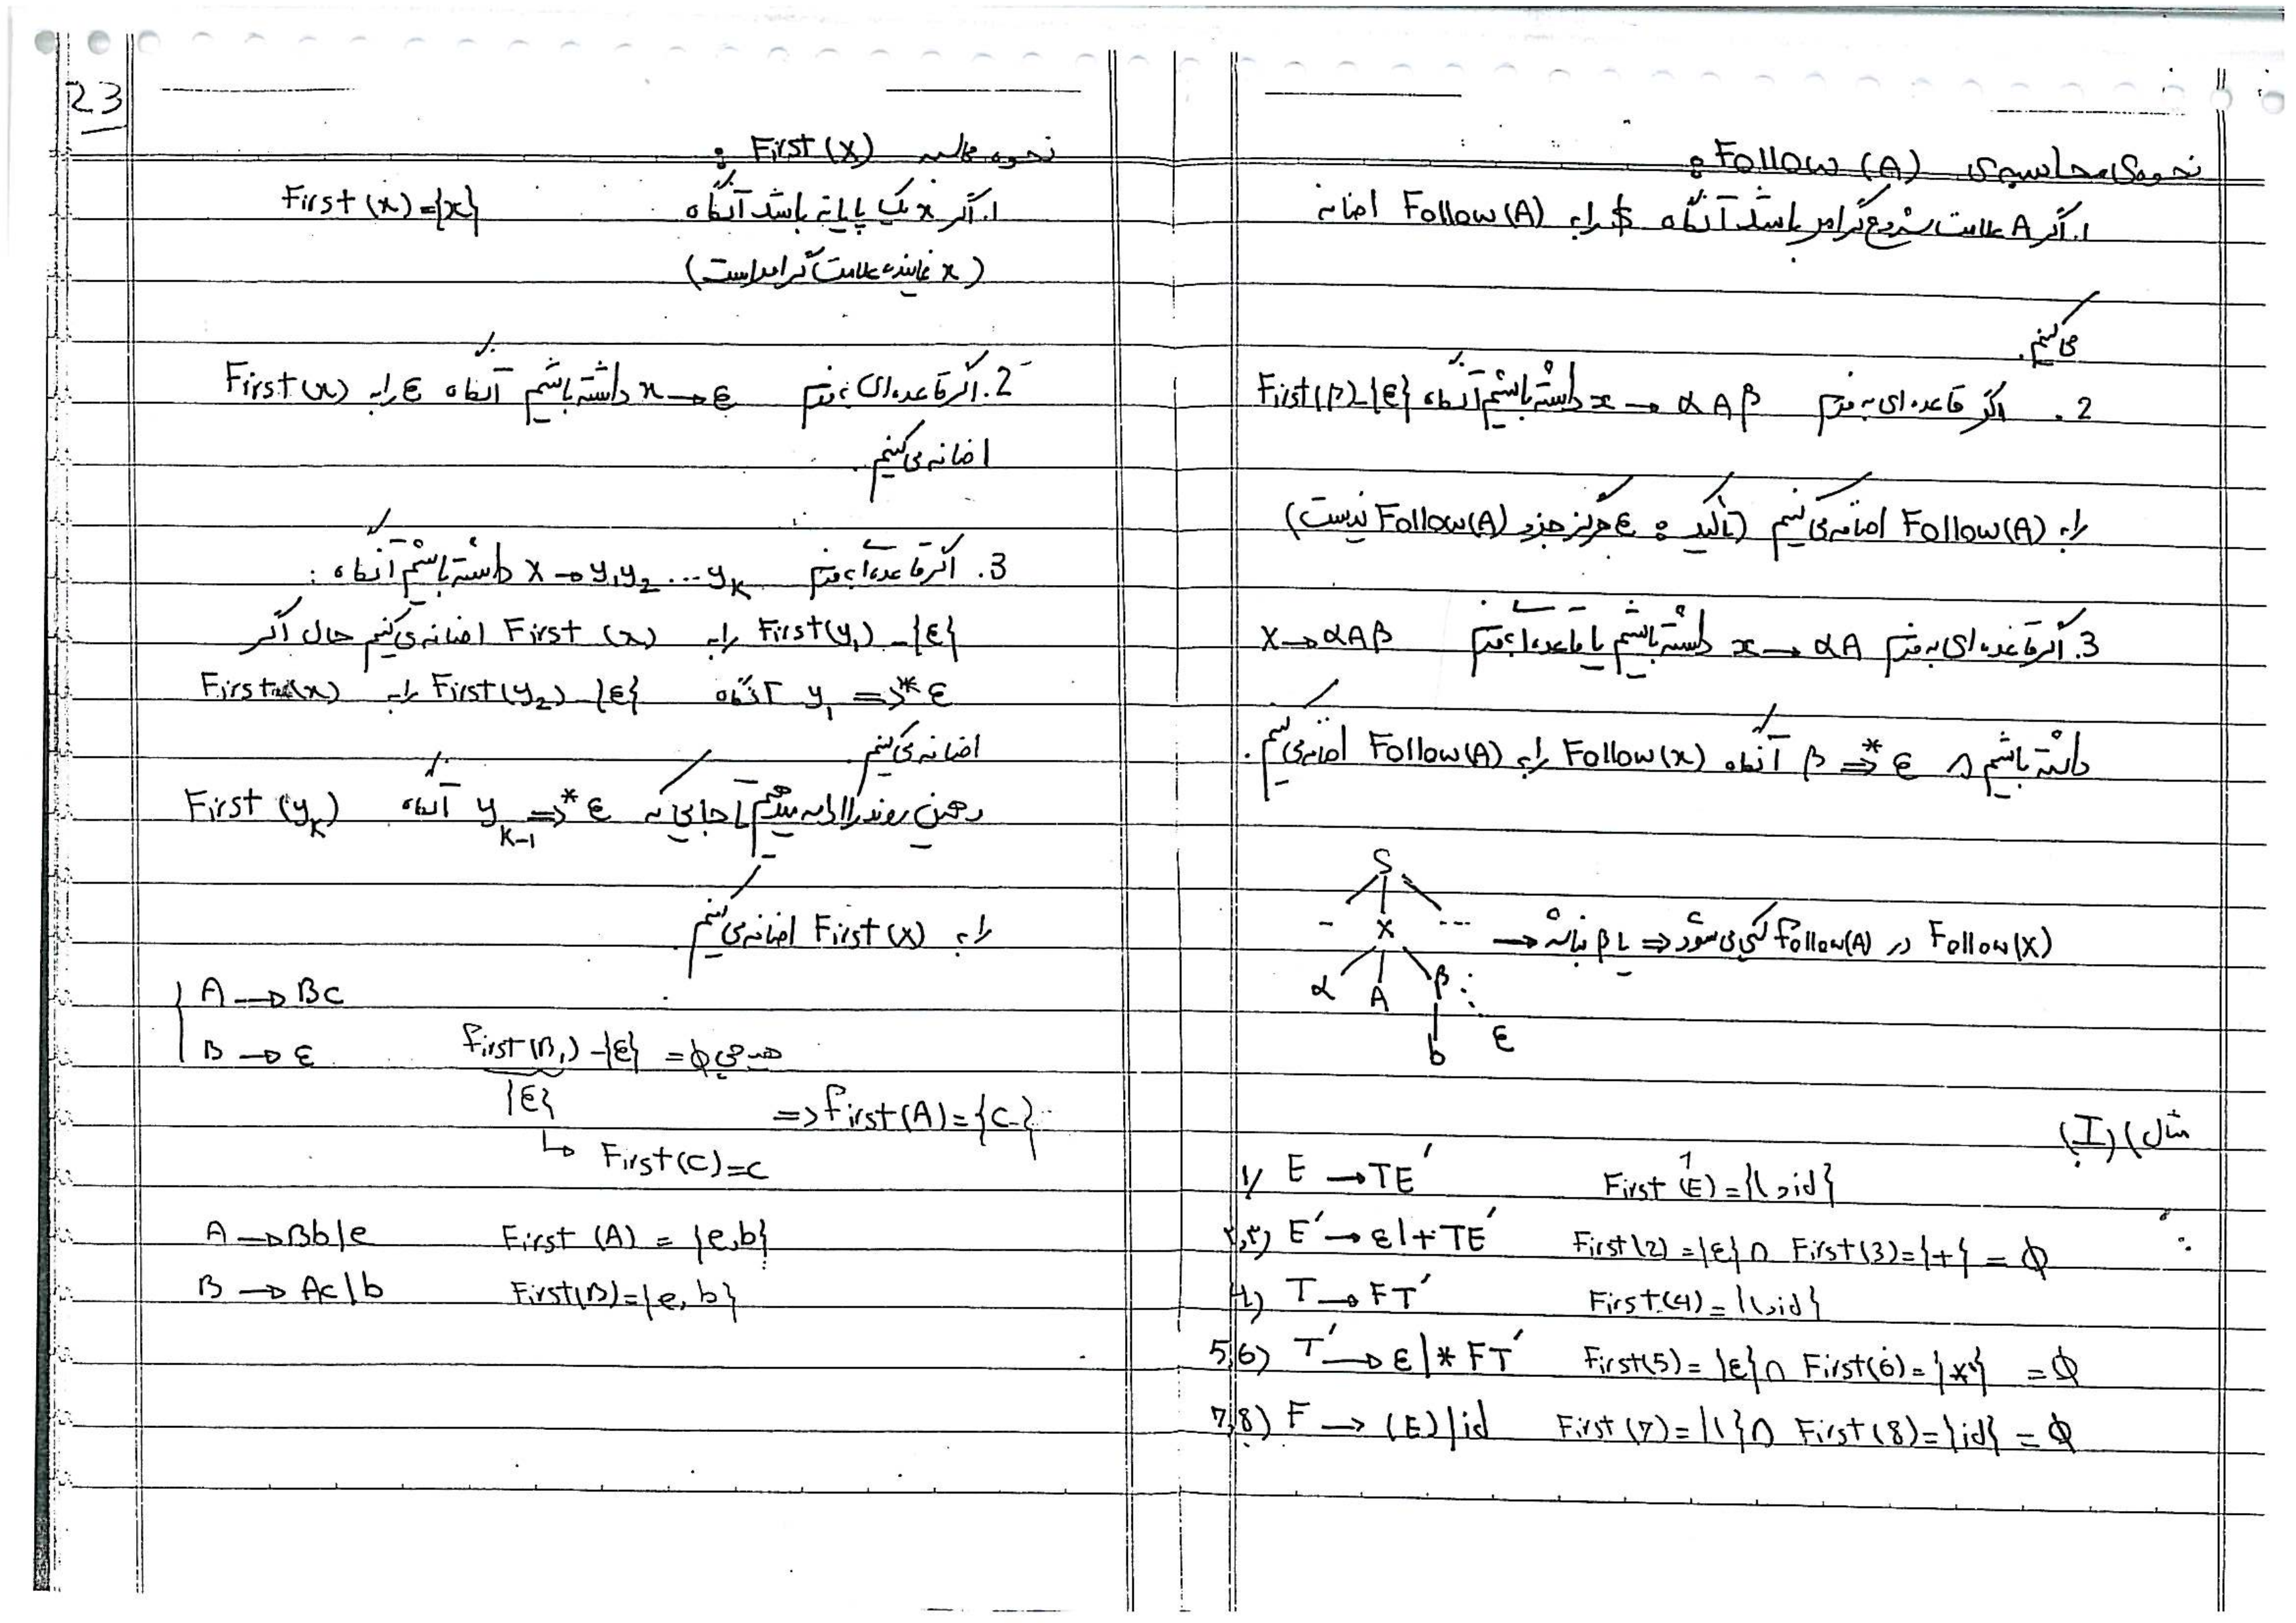 23
نحوه محاسبه First (x) :
1. اگر x یک پایانه باشد آنگاه First (x) = {x}
(x نماینده علامت گرامر است)
2. اگر قاعده‌ای به فرم x → ε داشته باشیم آنگاه ε را به First (x)
اضافه می‌کنیم.
3. اگر قاعده‌ای به فرم X → y₁y₂ ... yₖ داشته باشیم آنگاه :
First(y₁) - {ε} را به First (x) اضافه می‌کنیم حال اگر
y₁ =>* ε آنگاه First(y₂) - {ε} را به First (x)
اضافه می‌کنیم
و همین روند را ادامه میدهیم تا جایی که yₖ₋₁ =>* ε آنگاه First (yₖ)
را به First (x) اضافه می‌کنیم.
A → Bc
B → ε First(B₁) - {ε} = φ
{ε} => First(A) = {c}
↳ First(c) = c
A → Bb|e First (A) = {e,b}
B → Ac|b First(B) = {e, b}
نحوه‌ی محاسبه‌ی Follow (A) :
1. اگر A علامت شروع گرامر باشد آنگاه $ را به Follow (A) اضافه
می‌کنیم.
2. اگر قاعده‌ای به فرم x → αAβ داشته باشیم آنگاه First(β) - {ε}
را به Follow (A) اضافه می‌کنیم (تاکید : ε هرگز جزو Follow(A) نیست)
3. اگر قاعده‌ای به فرم x → αA داشته باشیم یا قاعده‌ای به فرم X → αAβ
داشته باشیم ∧ β =>* ε آنگاه Follow (x) را به Follow(A) اضافه می‌کنیم.
S
- X ---
→ => Follow (X) در Follow(A) کپی می‌شود
α A β
b ε
مثال) (I)
1) E → TE' First (E) = {(,id}
۲,۳) E' → ε|+TE' First(2) = {ε} ∩ First(3) = {+} = φ
4) T → FT' First(4) = {(,id}
5,6) T' → ε|*FT' First(5) = {ε} ∩ First(6) = {*} = φ
7,8) F → (E)|id First (7) = {(} ∩ First (8) = {id} = φ